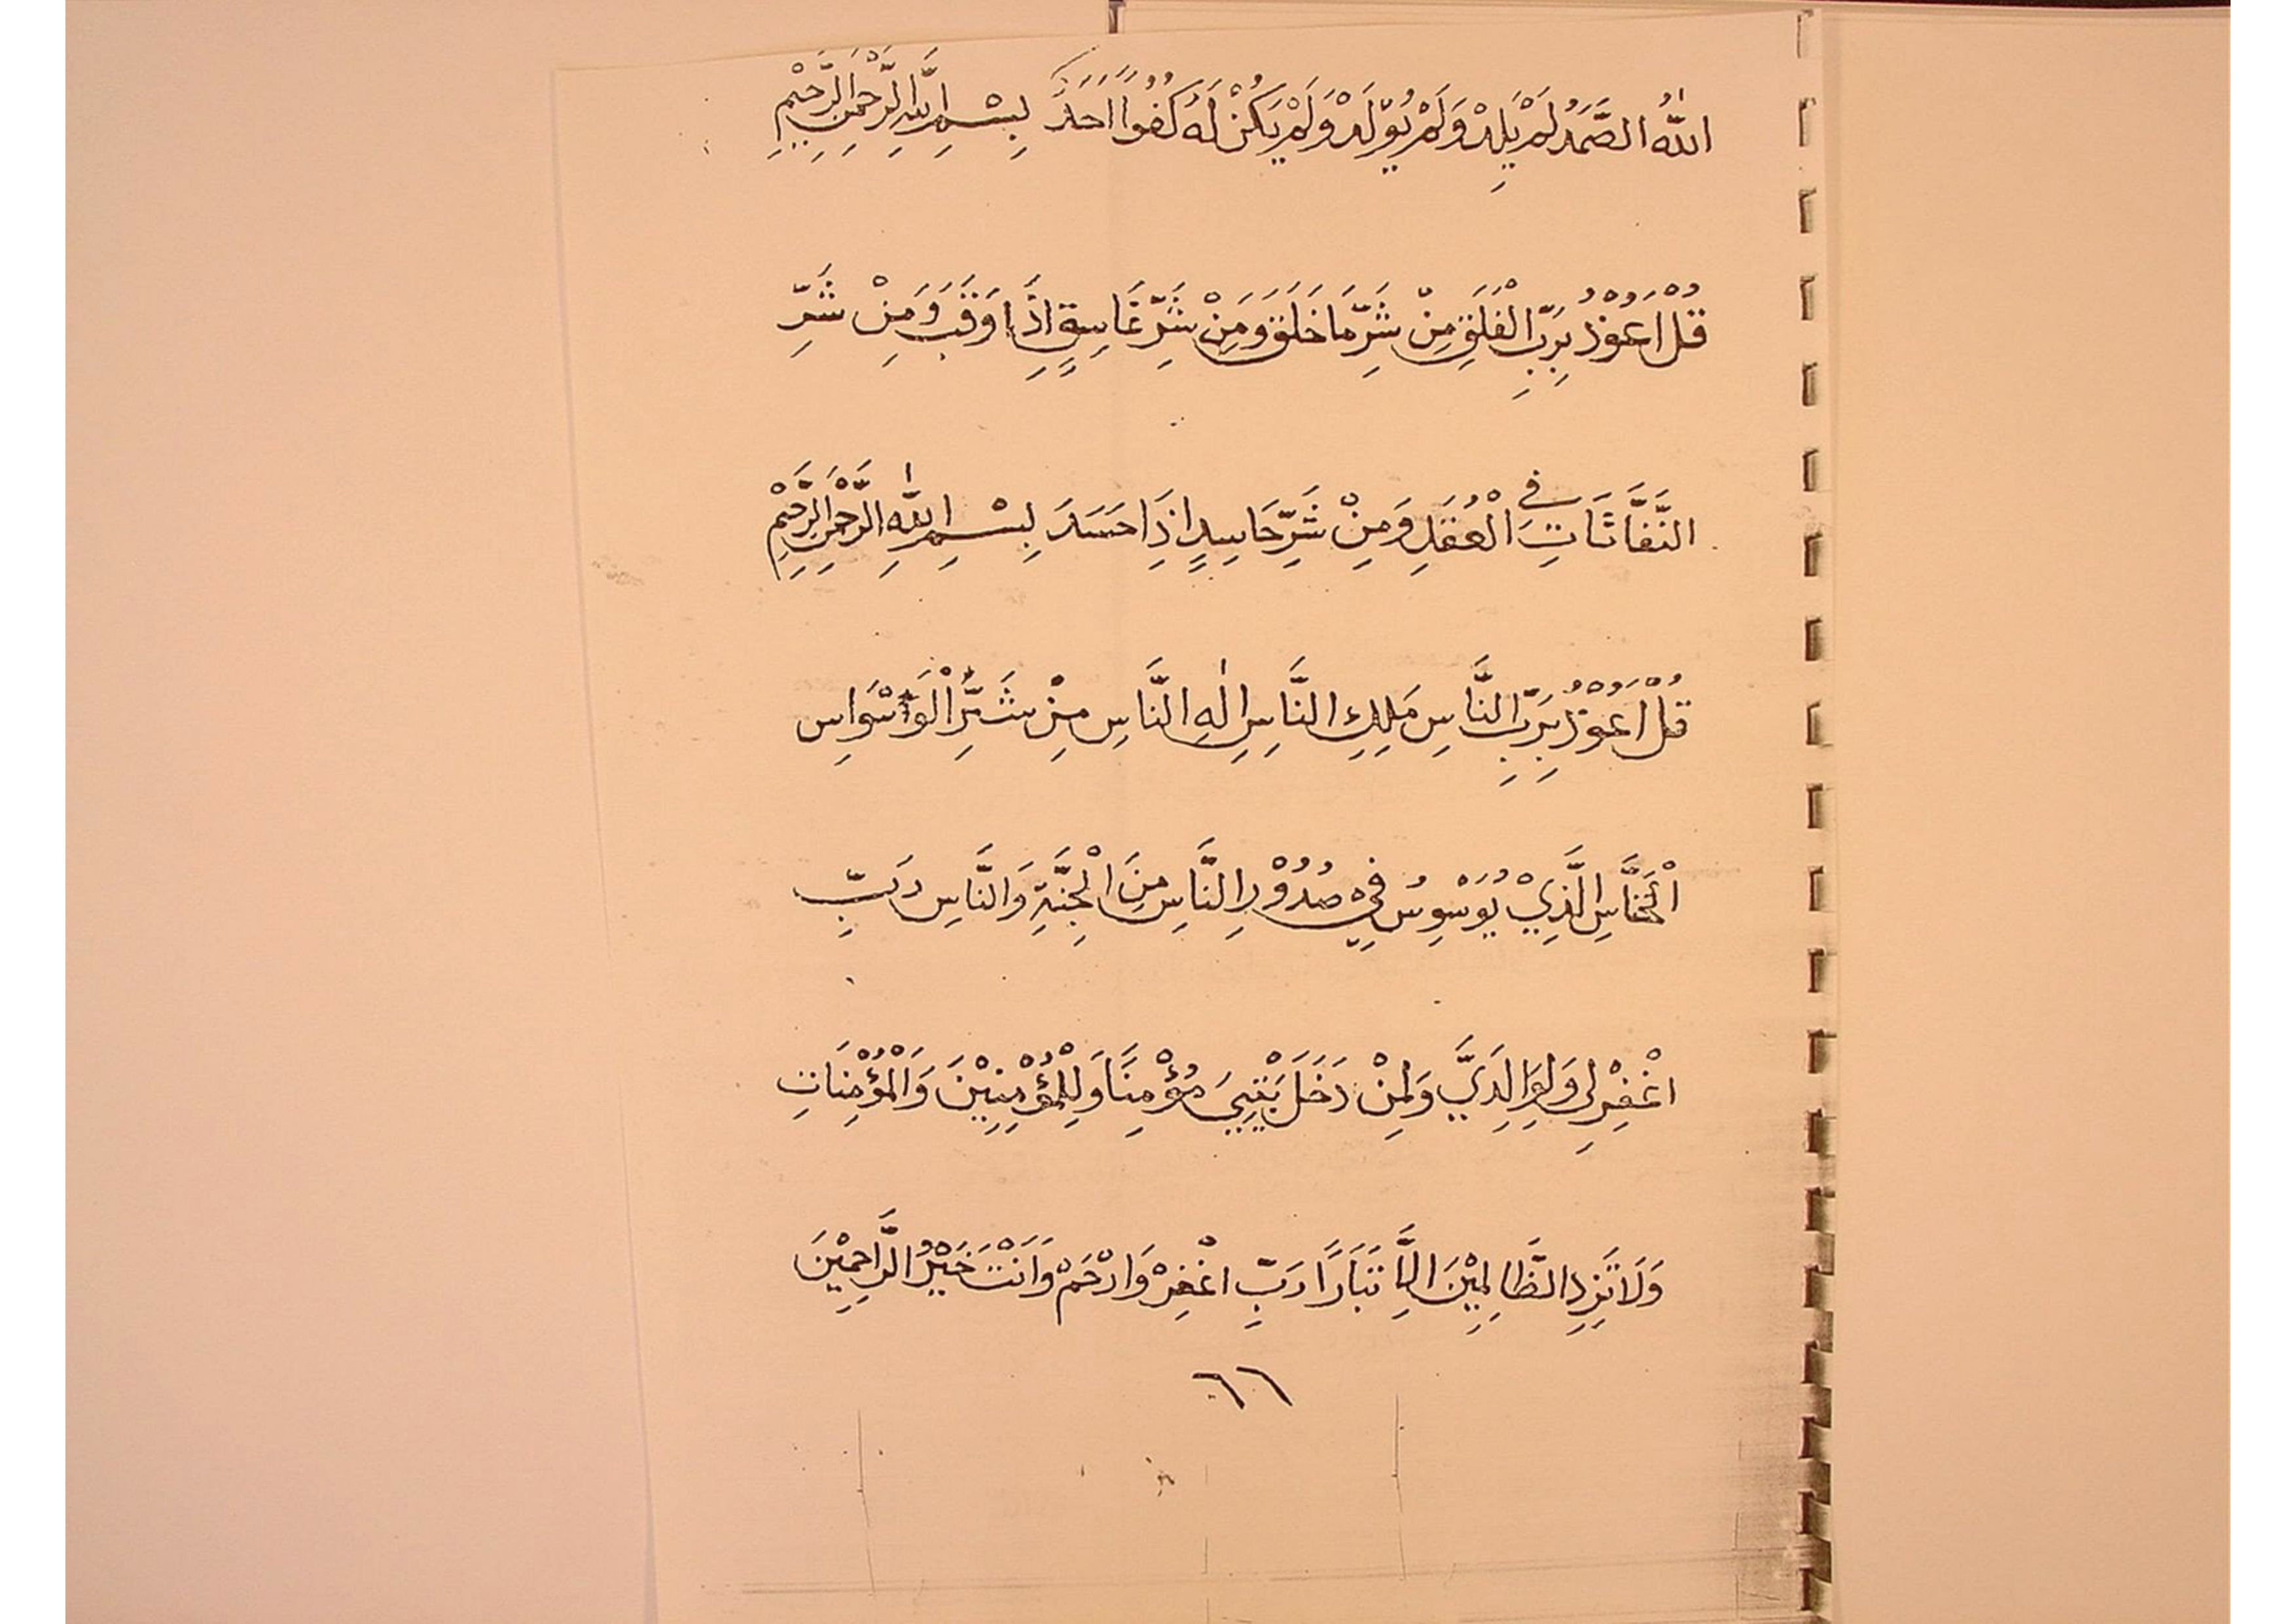 اَللّٰهُ الصَّمَدُ لَمْ يَلِدْ وَلَمْ يُوْلَدْ وَلَمْ يَكُنْ لَهُ كُفُوًا اَحَدٌ بِسْمِ اللّٰهِ الرَّحْمٰنِ الرَّحِيْمِ
قُلْ اَعُوْذُ بِرَبِّ الْفَلَقِ مِنْ شَرِّ مَا خَلَقَ وَمِنْ شَرِّ غَاسِقٍ اِذَا وَقَبَ وَمِنْ شَرِّ
النَّفَّاثَاتِ فِى الْعُقَدِ وَمِنْ شَرِّ حَاسِدٍ اِذَا حَسَدَ بِسْمِ اللّٰهِ الرَّحْمٰنِ الرَّحِيْمِ
قُلْ اَعُوْذُ بِرَبِّ النَّاسِ مَلِكِ النَّاسِ اِلٰهِ النَّاسِ مِنْ شَرِّ الْوَسْوَاسِ
الْخَنَّاسِ الَّذِيْ يُوَسْوِسُ فِيْ صُدُوْرِ النَّاسِ مِنَ الْجِنَّةِ وَالنَّاسِ رَبِّ
اغْفِرْ لِى وَلِوَالِدَيَّ وَلِمَنْ دَخَلَ بَيْتِيَ مُؤْمِنًا وَلِلْمُؤْمِنِيْنَ وَالْمُؤْمِنَاتِ
وَلَا تَزِدِ الظَّالِمِيْنَ اِلَّا تَبَارًا رَبِّ اغْفِرْ وَارْحَمْ وَاَنْتَ خَيْرُ الرَّاحِمِيْنَ
٦٦